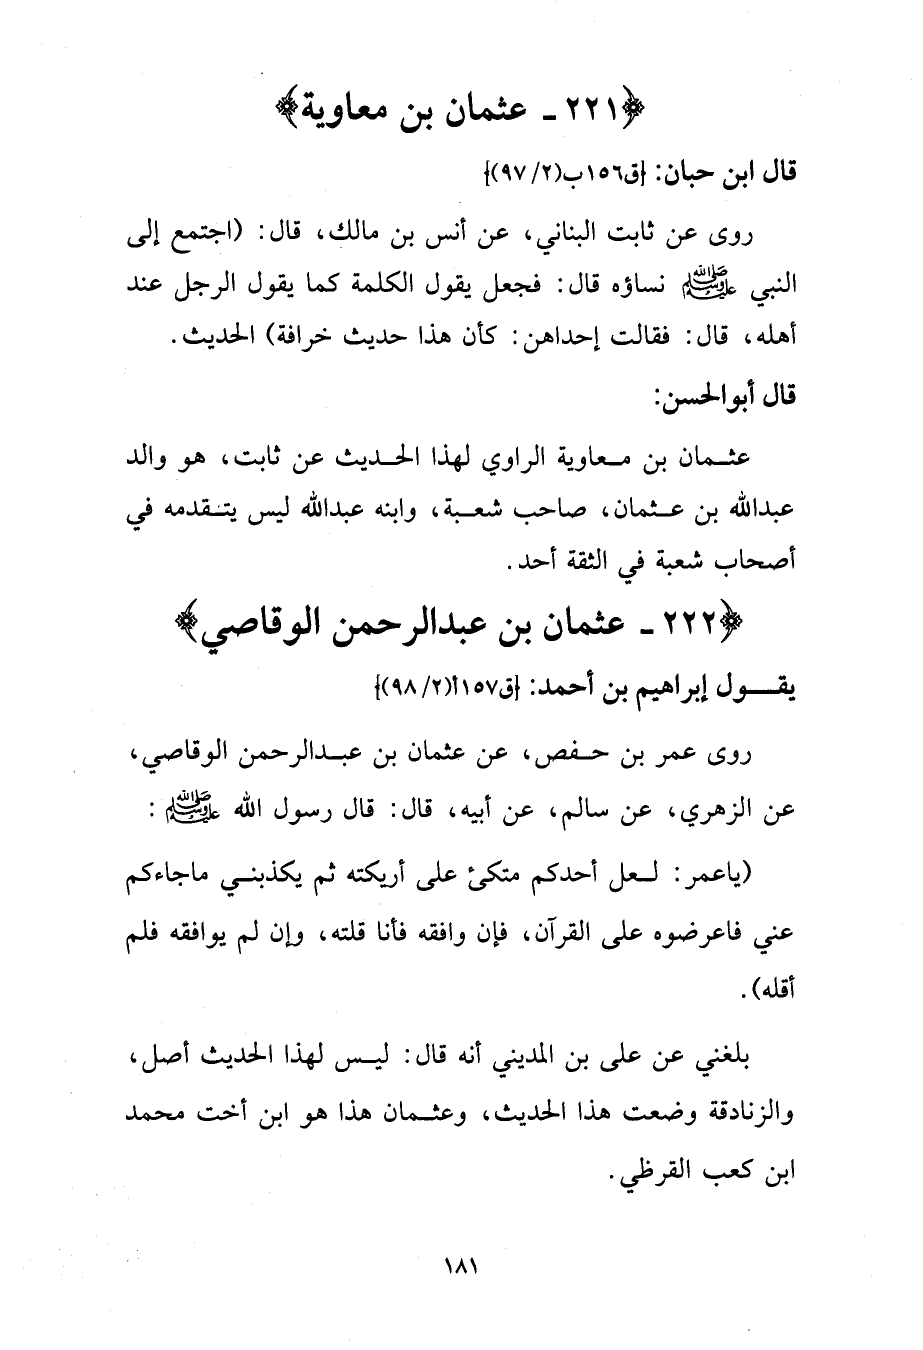 ﴿٢٢١ ـ عثمان بن معاوية﴾
قال ابن حبان: {ق١٥٦ب(٩٧/٢)}
روى عن ثابت البناني، عن أنس بن مالك، قال: (اجتمع إلى
النبي ﷺ نساؤه قال: فجعل يقول الكلمة كما يقول الرجل عند
أهله، قال: فقالت إحداهن: كأن هذا حديث خرافة) الحديث.
قال أبوالحسن:
عثمان بن معاوية الراوي لهذا الحديث عن ثابت، هو والد
عبدالله بن عثمان، صاحب شعبة، وابنه عبدالله ليس يتقدمه في
أصحاب شعبة في الثقة أحد.
﴿٢٢٢ ـ عثمان بن عبدالرحمن الوقاصي﴾
يقول إبراهيم بن أحمد: {ق١٥٧أ(٩٨/٢)}
روى عمر بن حفص، عن عثمان بن عبدالرحمن الوقاصي،
عن الزهري، عن سالم، عن أبيه، قال: قال رسول الله ﷺ :
(ياعمر: لعل أحدكم متكئ على أريكته ثم يكذبني ماجاءكم
عني فاعرضوه على القرآن، فإن وافقه فأنا قلته، وإن لم يوافقه فلم
أقله).
بلغني عن على بن المديني أنه قال: ليس لهذا الحديث أصل،
والزنادقة وضعت هذا الحديث، وعثمان هذا هو ابن أخت محمد
ابن كعب القرظي.
١٨١